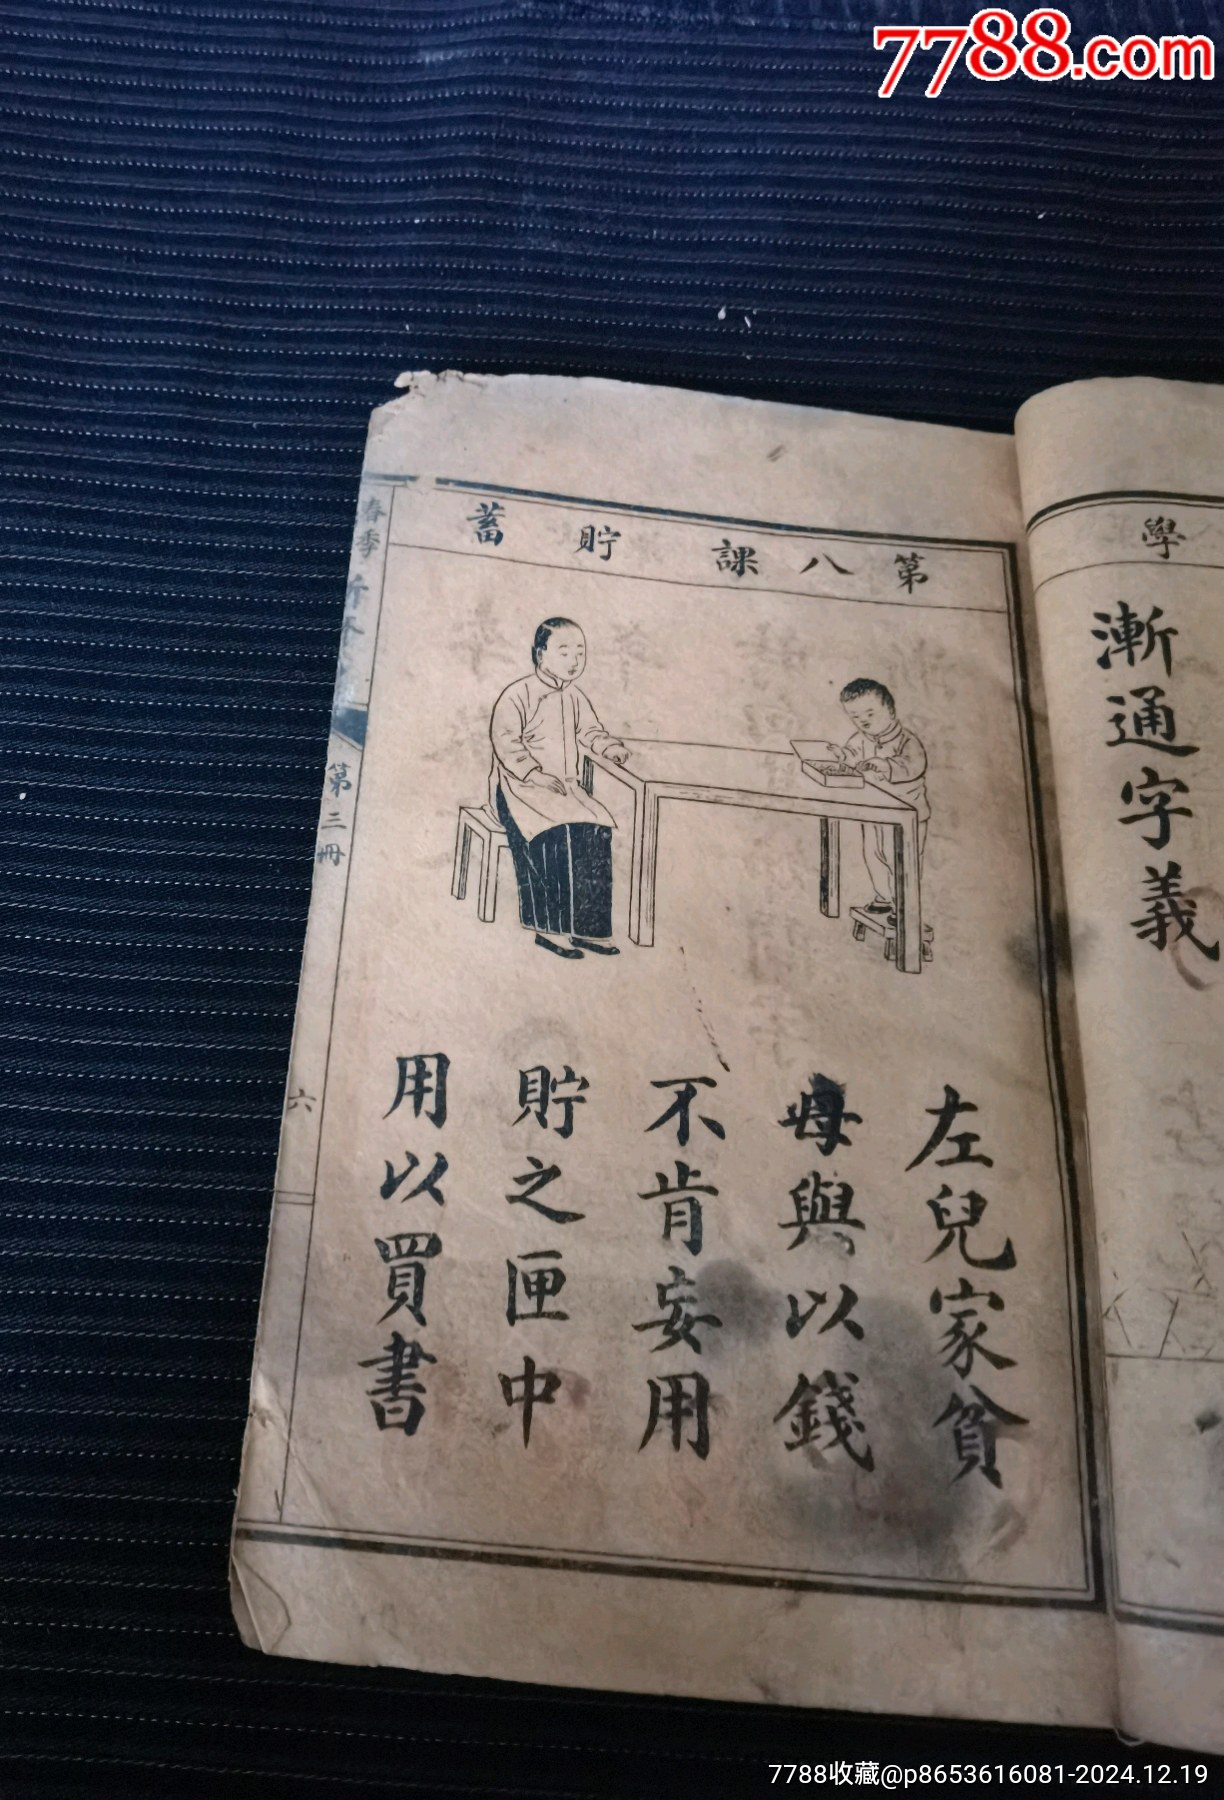 7788.com
學
漸通字義
第八課 貯蓄
左兒家貧
母與以錢
不肯妄用
貯之匣中
用以買書
春季
第三冊
六
7788收藏@p8653616081-2024.12.19